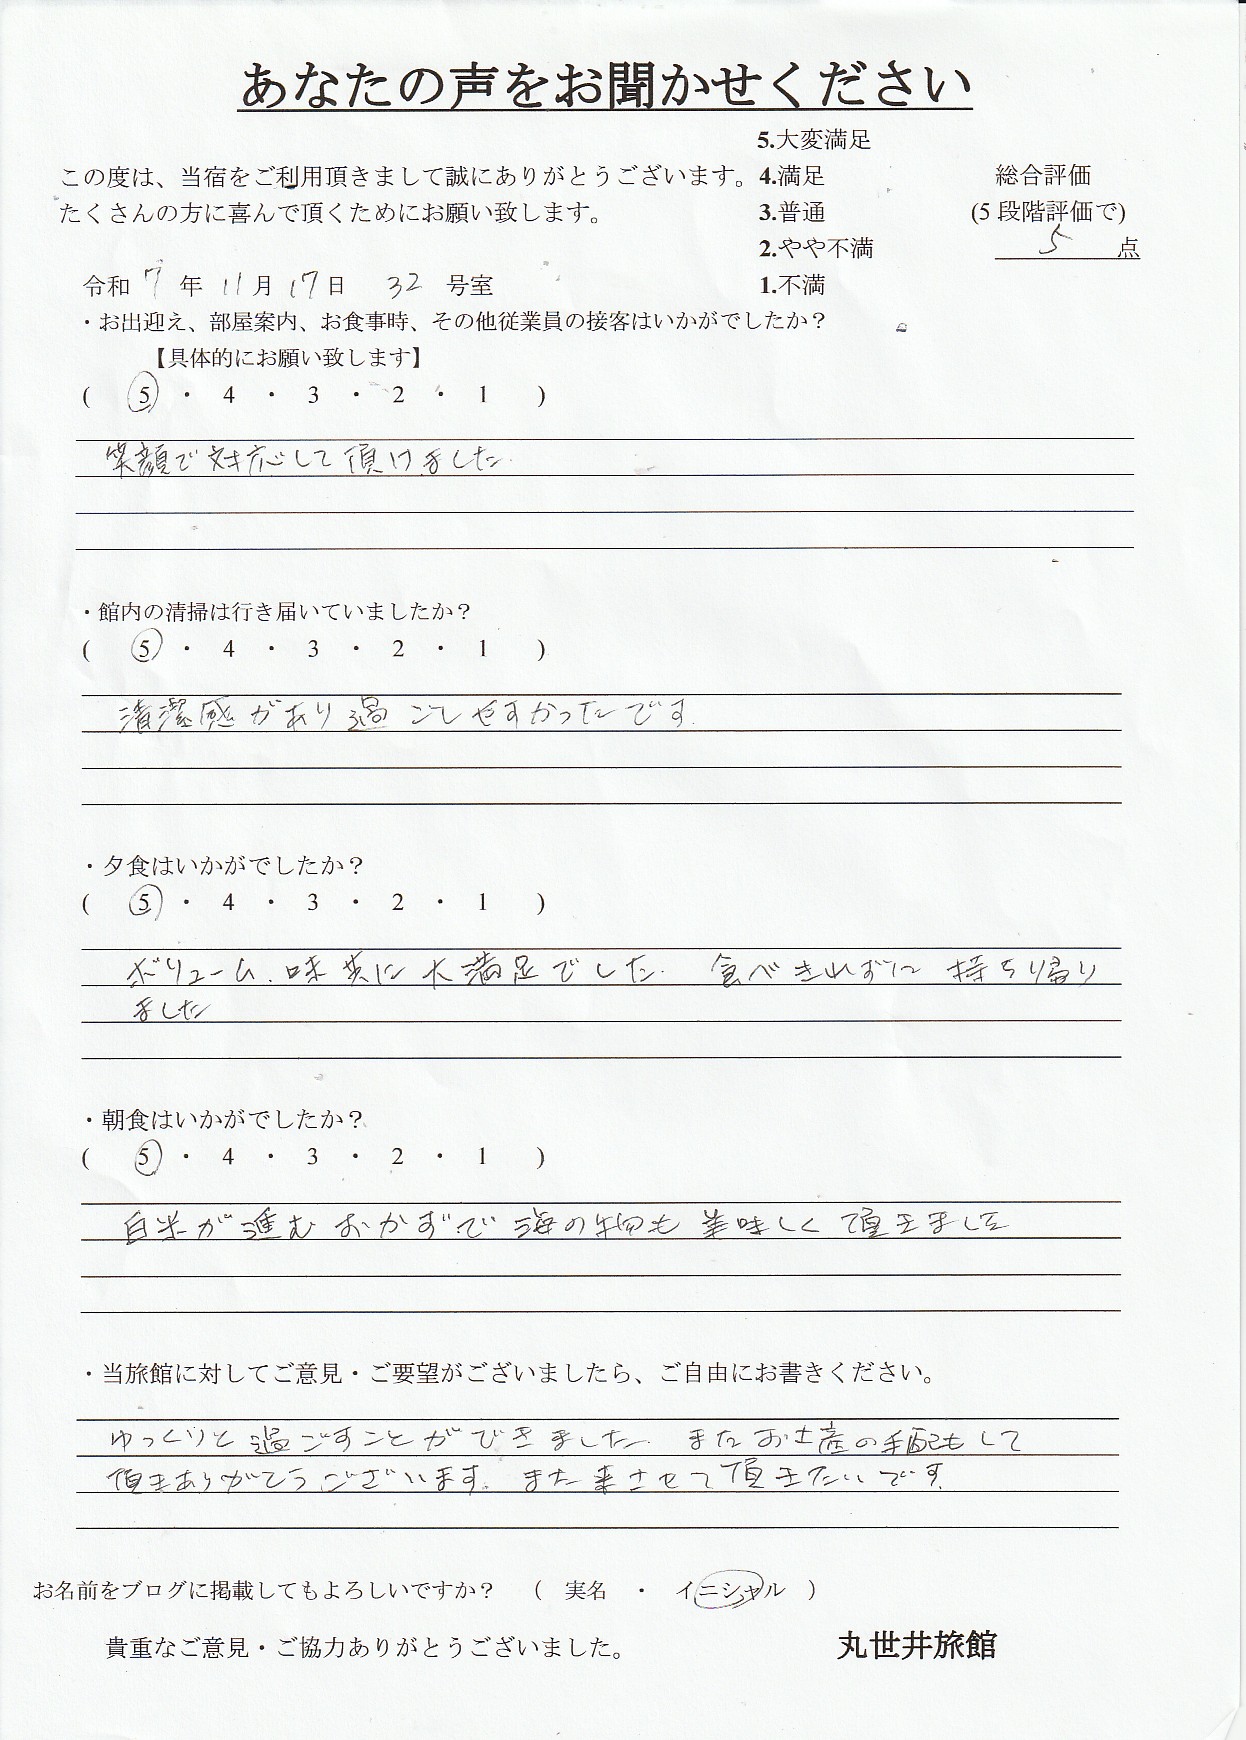 あなたの声をお聞かせください
5.大変満足
この度は、当宿をご利用頂きまして誠にありがとうございます。 4.満足 総合評価
たくさんの方に喜んで頂くためにお願い致します。 3.普通 (5 段階評価で)
2.やや不満 5 点
令和 7 年 11 月 17 日 32 号室 1.不満
・お出迎え、部屋案内、お食事時、その他従業員の接客はいかがでしたか？
【具体的にお願い致します】
( 5 ・ 4 ・ 3 ・ 2 ・ 1 )
笑顔で対応して頂けました
・館内の清掃は行き届いていましたか？
( 5 ・ 4 ・ 3 ・ 2 ・ 1 )
清潔感があり過ごしやすかったです.
・夕食はいかがでしたか？
( 5 ・ 4 ・ 3 ・ 2 ・ 1 )
ボリューム、味共に大満足でした. 食べきれずに持ち帰り
ました
・朝食はいかがでしたか？
( 5 ・ 4 ・ 3 ・ 2 ・ 1 )
白米が進むおかずで海の物も美味しく頂きました
・当旅館に対してご意見・ご要望がございましたら、ご自由にお書きください。
ゆっくりと過ごすことができました. またお土産の手配もして
頂きありがとうございます. また来させて頂きたいです.
お名前をブログに掲載してもよろしいですか？ ( 実名 ・ イニシャル )
貴重なご意見・ご協力ありがとうございました。 丸世井旅館